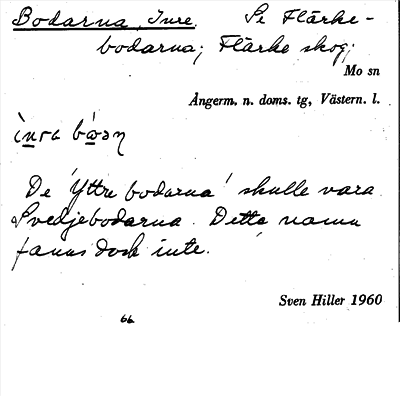 Bodarna, Inre. Se Flärke-
bodarna; Flärke skog;
Mo sn
Ångerm. n. doms. tg, Västern. l.
De 'Yttre bodarna' skulle vara
Svedjebodarna. Detta namn
fanns dock inte.
Sven Hiller 1960
66